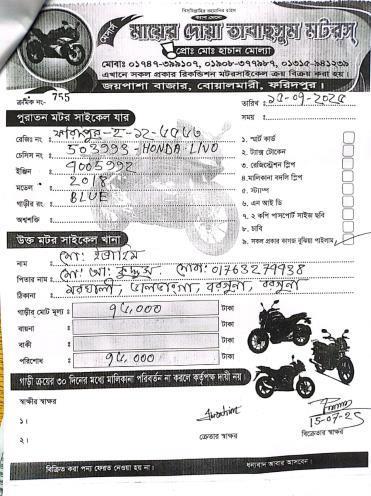 বিসমিল্লাহির রাহমানির রাহিম
মায়ের দোয়া তাবাচ্ছুম মটরস্
প্রোঃ মোঃ হাচান মোল্যা
মোবাঃ ০১৭৪৭-৩৯৯১০৭, ০১৯০৮-৩৭৭৯৮৭, ০১৩১৫-৯৪১২৩৯
এখানে সকল প্রকার রিকন্ডিশন মটরসাইকেল ক্রয় বিক্রয় করা হয়।
জয়পাশা বাজার, বোয়ালমারী, ফরিদপুর।
ক্রমিক নং- 755
তারিখ :
পুরাতন মটর সাইকেল যার
সময় :
রেজিঃ নং : ফরিদপুর-হ-১২-৫৫৫৬
চেসিস নং : 503993-HONDA LIVO
ইঞ্জিন : 9005992
মডেল : 2018
গাড়ীর রং : BLUE
অশ্বশক্তি :
১. স্মার্ট কার্ড
২. ট্যাক্স টোকেন
৩. রেজিস্ট্রেশন স্লিপ
৪. মালিকানা বদলি স্লিপ
৫. স্ট্যাম্প
৬. এন আই ডি
৭. ২ কপি পাসপোর্ট সাইজ ছবি
৮. চাবি
৯. সকল প্রকার কাগজ বুঝিয়া পাইলাম
উক্ত মটর সাইকেল খানা
নাম : মো: ইব্রাহিম
পিতার নাম : মো: আ: কুদ্দুস মোবা: 01763279938
ঠিকানা : বরগুনা, বরগুনা
গাড়ীর মোট মূল্য : ৯৫,০০০ টাকা
বায়না : টাকা
বাকী : টাকা
পরিশোধ : ৯৫,০০০ টাকা
গাড়ী ক্রয়ের ৩০ দিনের মধ্যে মালিকানা পরিবর্তন না করলে কর্তৃপক্ষ দায়ী নয়
স্বাক্ষীর স্বাক্ষর
১।
২।
Ibrahim
ক্রেতার স্বাক্ষর
15-07-25
বিক্রেতার স্বাক্ষর
বিক্রিত করা পন্য ফেরত নেওয়া হয় না।
ধন্যবাদ আবার আসবেন।